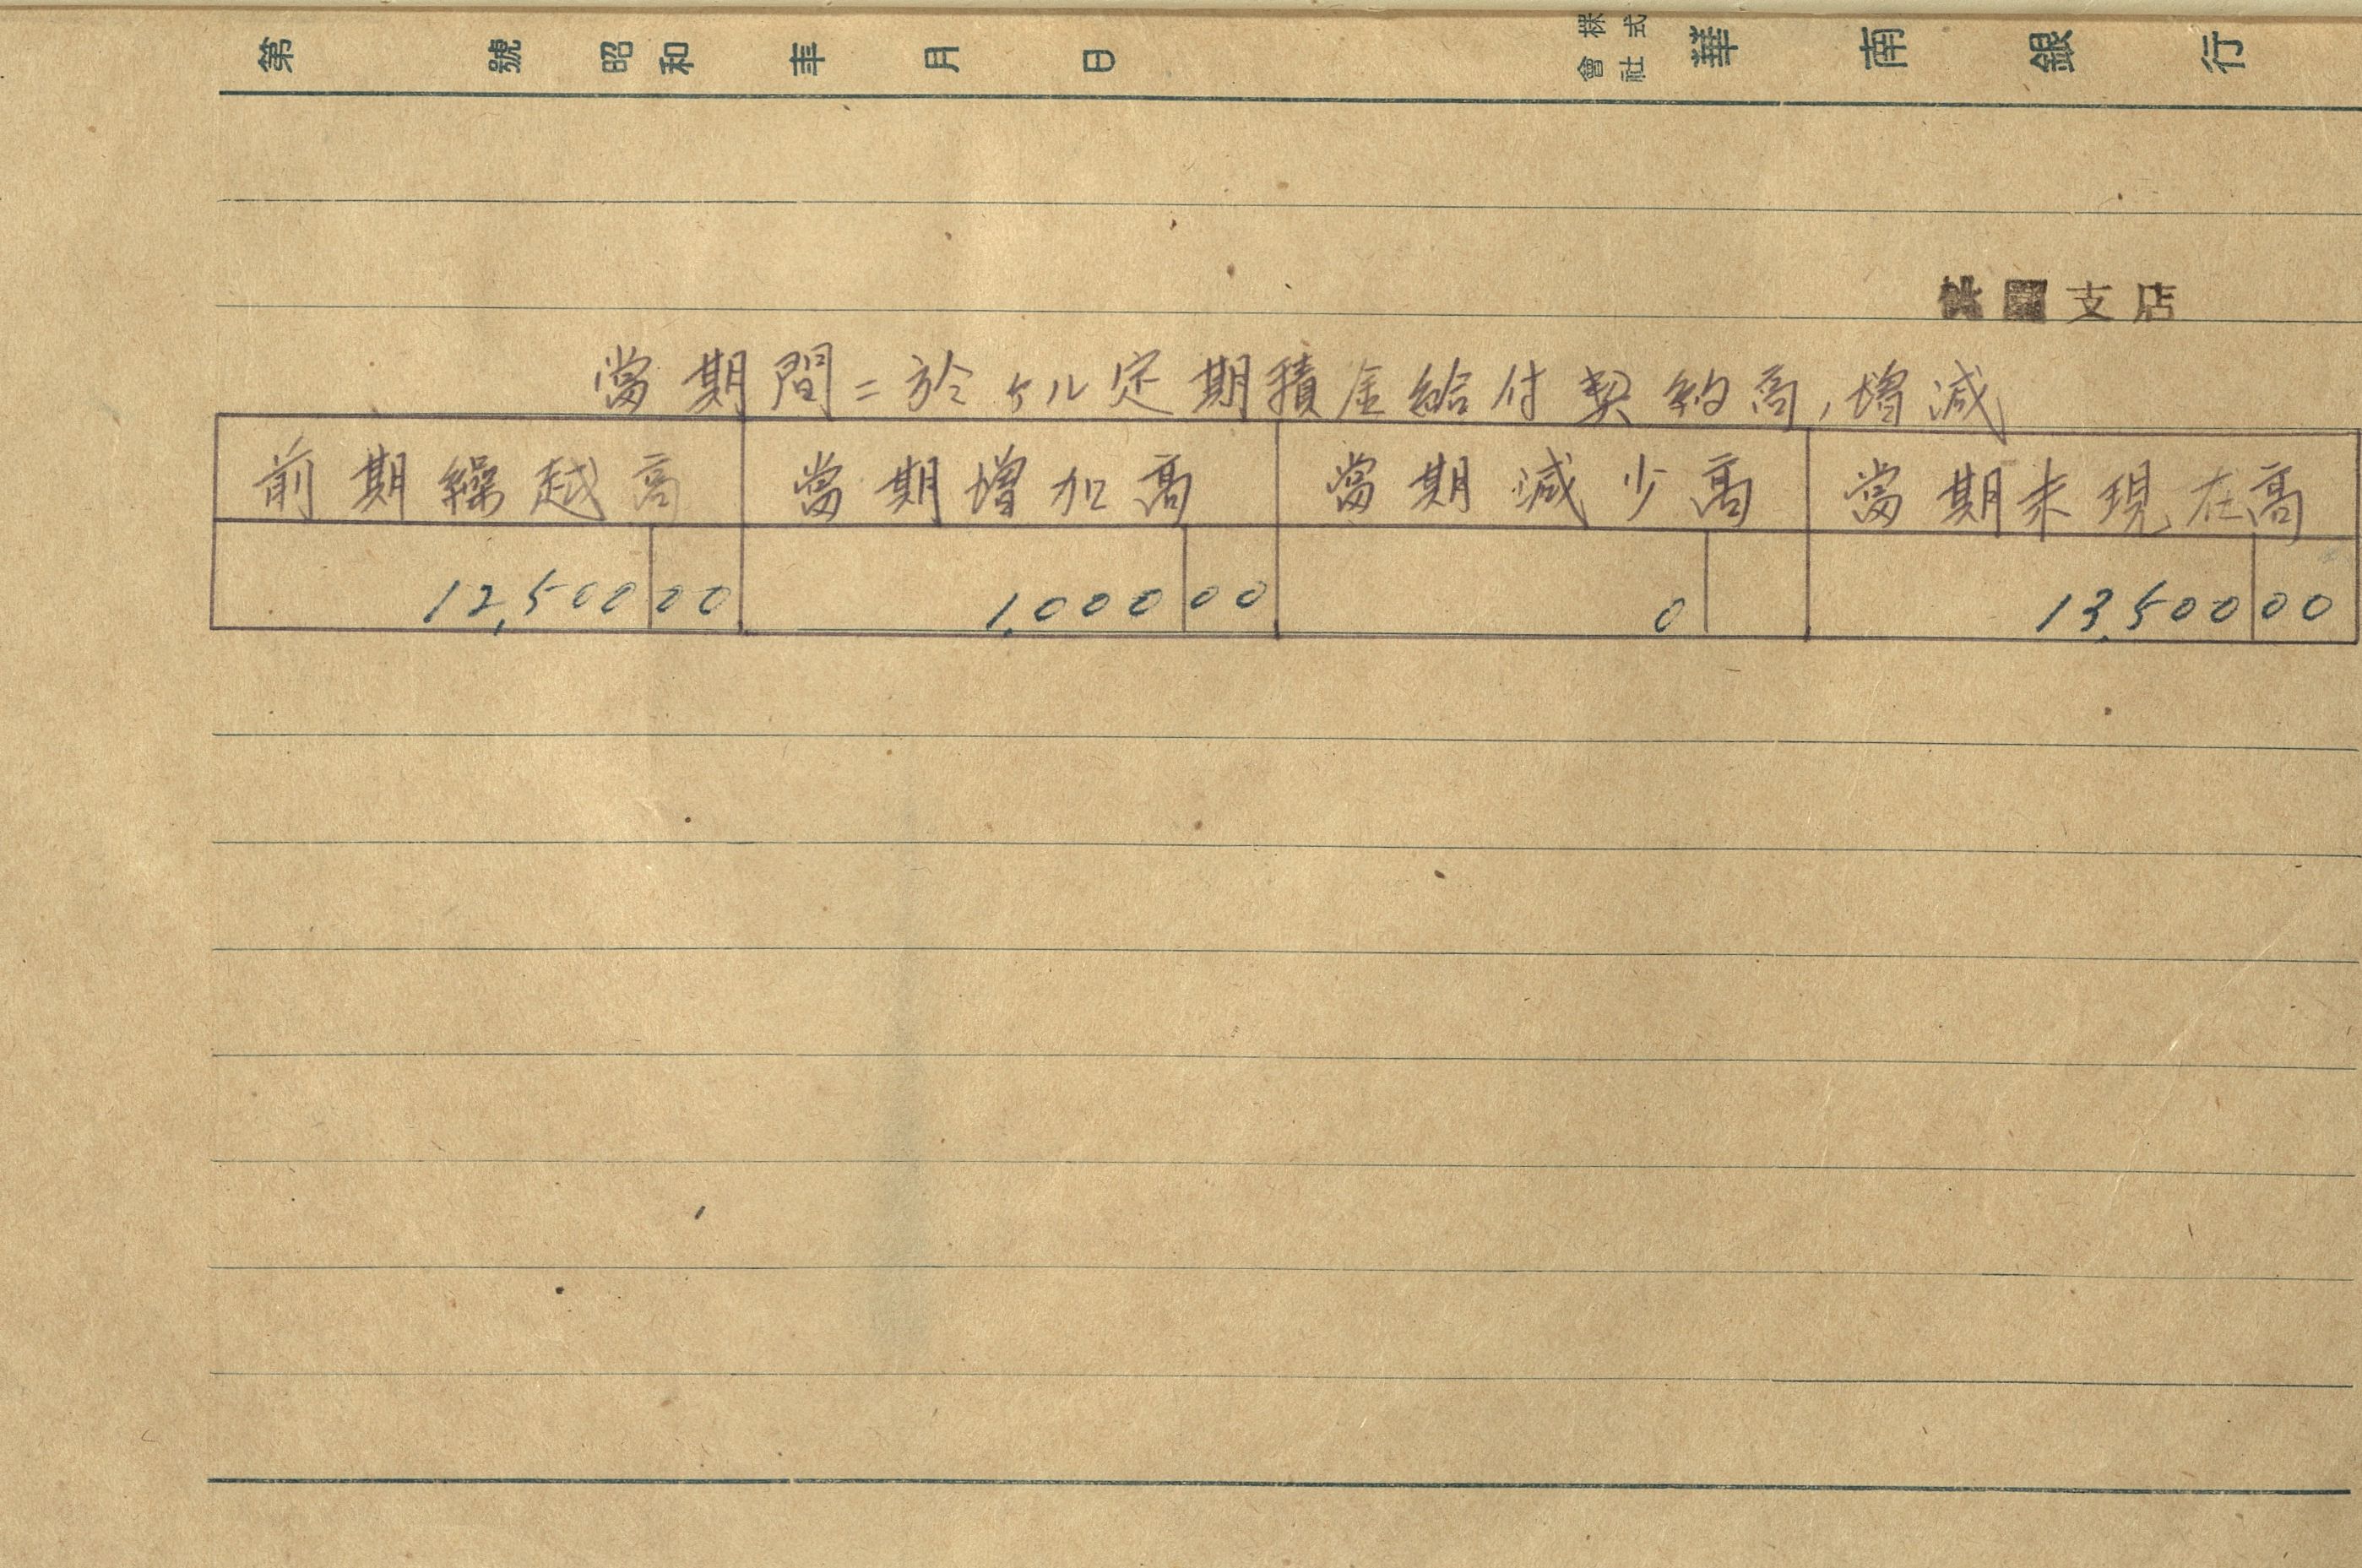 第 號 昭和 年 月 日 株式會社 華南銀行
桃園支店
當期間ニ於ケル定期積金給付契約高ノ增減
前期繰越高 當期增加高 當期減少高 當期末現在高
12,500 00 1,000 00 0 13,500 00